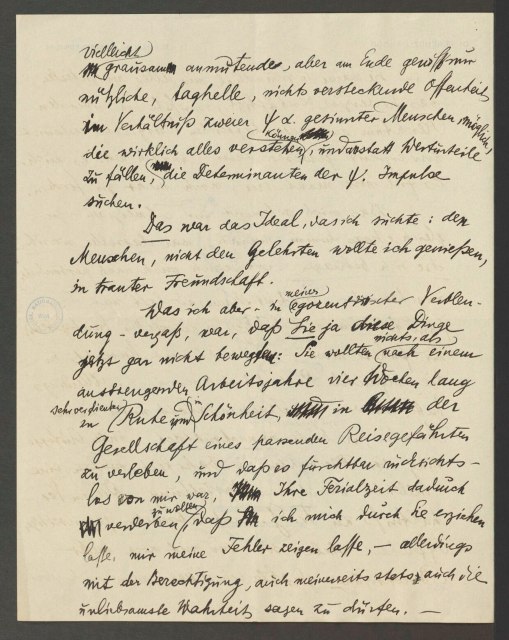 vielleicht
grausam anmutende, aber am Ende gewiss nur
nützliche, taghelle, nichts versteckende Offenheit
im Verhältniß zweier ψα gesinnter Menschen möglich,
die wirklich alles verstehen können, und anstatt Werturteile
zu fällen, die Determinanten der ψ. Impulse
suchen.
Das war das Ideal, das ich suchte: den
Menschen, nicht den Gelehrten wollte ich genießen,
in trauter Freundschaft.
Was ich aber - in meiner egozentrischer Verblen-
dung - vergaß, war, daß Sie ja diese Dinge
jetzt gar nicht bewegten: Sie wollten nichts, als nach einem
anstrengenden Arbeitsjahre vier Wochen lang
sehr verdienter
in Ruhe und in Schönheit, in der
Gesellschaft eines passenden Reisegefährten
zu verleben, und daß es furchtbar rücksichts-
los von mir war, Ihre Ferialzeit dadurch
verderben zu wollen, daß ich mich durch Sie erziehen
lasse, mir meine Fehler zeigen lasse, — allerdings
mit der Berechtigung, auch meinerseits stets auch die
unliebsamste Wahrheit sagen zu dürfen. —